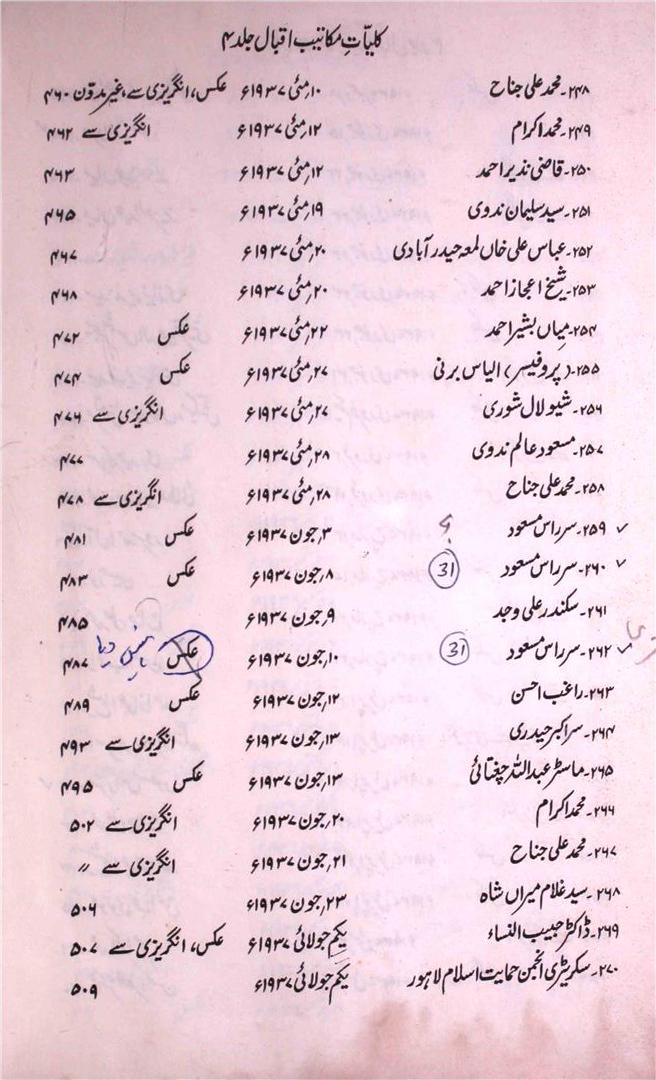 کلیّاتِ مکاتیب اقبال جلد ۴
۲۴۸۔ محمد علی جناح ۱۰؍مئی ۱۹۳۷ء عکس، انگریزی سے، غیر مدوّن ۴۶۰
۲۴۹۔ محمد اکرام ۱۲؍مئی ۱۹۳۷ء انگریزی سے ۴۶۲
۲۵۰۔ قاضی نذیر احمد ۱۲؍مئی ۱۹۳۷ء ۴۶۳
۲۵۱۔ سید سلیمان ندوی ۱۹؍مئی ۱۹۳۷ء ۴۶۵
۲۵۲۔ عباس علی خاں لمعہ حیدر آبادی ۲۰؍مئی ۱۹۳۷ء ۴۶۷
۲۵۳۔ شیخ اعجاز احمد ۲۰؍مئی ۱۹۳۷ء ۴۶۸
۲۵۴۔ میاں بشیر احمد ۲۲؍مئی ۱۹۳۷ء عکس ۴۷۲
۲۵۵۔ (پروفیسر) الیاس برنی ۲۷؍مئی ۱۹۳۷ء عکس ۴۷۴
۲۵۶۔ شیو لال شوری ۲۷؍مئی ۱۹۳۷ء انگریزی سے ۴۷۶
۲۵۷۔ مسعود عالم ندوی ۲۸؍مئی ۱۹۳۷ء ۴۷۷
۲۵۸۔ محمد علی جناح ۲۸؍مئی ۱۹۳۷ء انگریزی سے ۴۷۸
✓ ۲۵۹۔ سر راس مسعود ؟ ۳؍جون ۱۹۳۷ء عکس ۴۸۱
✓ ۲۶۰۔ سر راس مسعود 31 ۸؍جون ۱۹۳۷ء عکس ۴۸۳
۲۶۱۔ سکندر علی وجد ۹؍جون ۱۹۳۷ء ۴۸۵
✓ ۲۶۲۔ سر راس مسعود 31 ۱۰؍جون ۱۹۳۷ء عکس نہیں دیا ۴۸۷
۲۶۳۔ راغب احسن ۱۲؍جون ۱۹۳۷ء عکس ۴۸۹
۲۶۴۔ سر اکبر حیدری ۱۳؍جون ۱۹۳۷ء انگریزی سے ۴۹۳
۲۶۵۔ ماسٹر عبداللہ چغتائی ۱۳؍جون ۱۹۳۷ء عکس ۴۹۵
۲۶۶۔ محمد اکرام ۲۰؍جون ۱۹۳۷ء انگریزی سے ۵۰۲
۲۶۷۔ محمد علی جناح ۲۱؍جون ۱۹۳۷ء انگریزی سے ״
۲۶۸۔ سید غلام میراں شاہ ۲۳؍جون ۱۹۳۷ء ۵۰۶
۲۶۹۔ ڈاکٹر حبیب النساء یکم جولائی ۱۹۳۷ء عکس، انگریزی سے ۵۰۷
۲۷۰۔ سکریٹری انجمن حمایت اسلام لاہور یکم جولائی ۱۹۳۷ء ۵۰۹